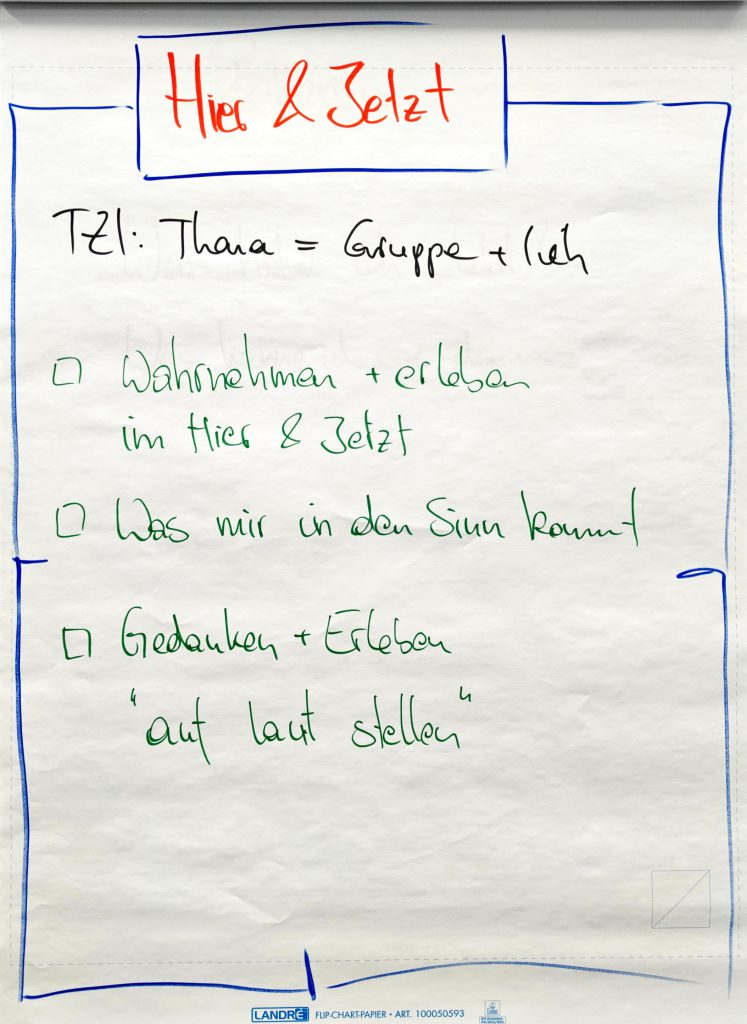 Hier & Jetzt
TZI: Thema = Gruppe + Ich
□ Wahrnehmen + erleben
im Hier & Jetzt
□ Was mir in den Sinn kommt
□ Gedanken + Erleben
"auf laut stellen"
LANDRÉ FLIP-CHART-PAPIER • ART. 100050593